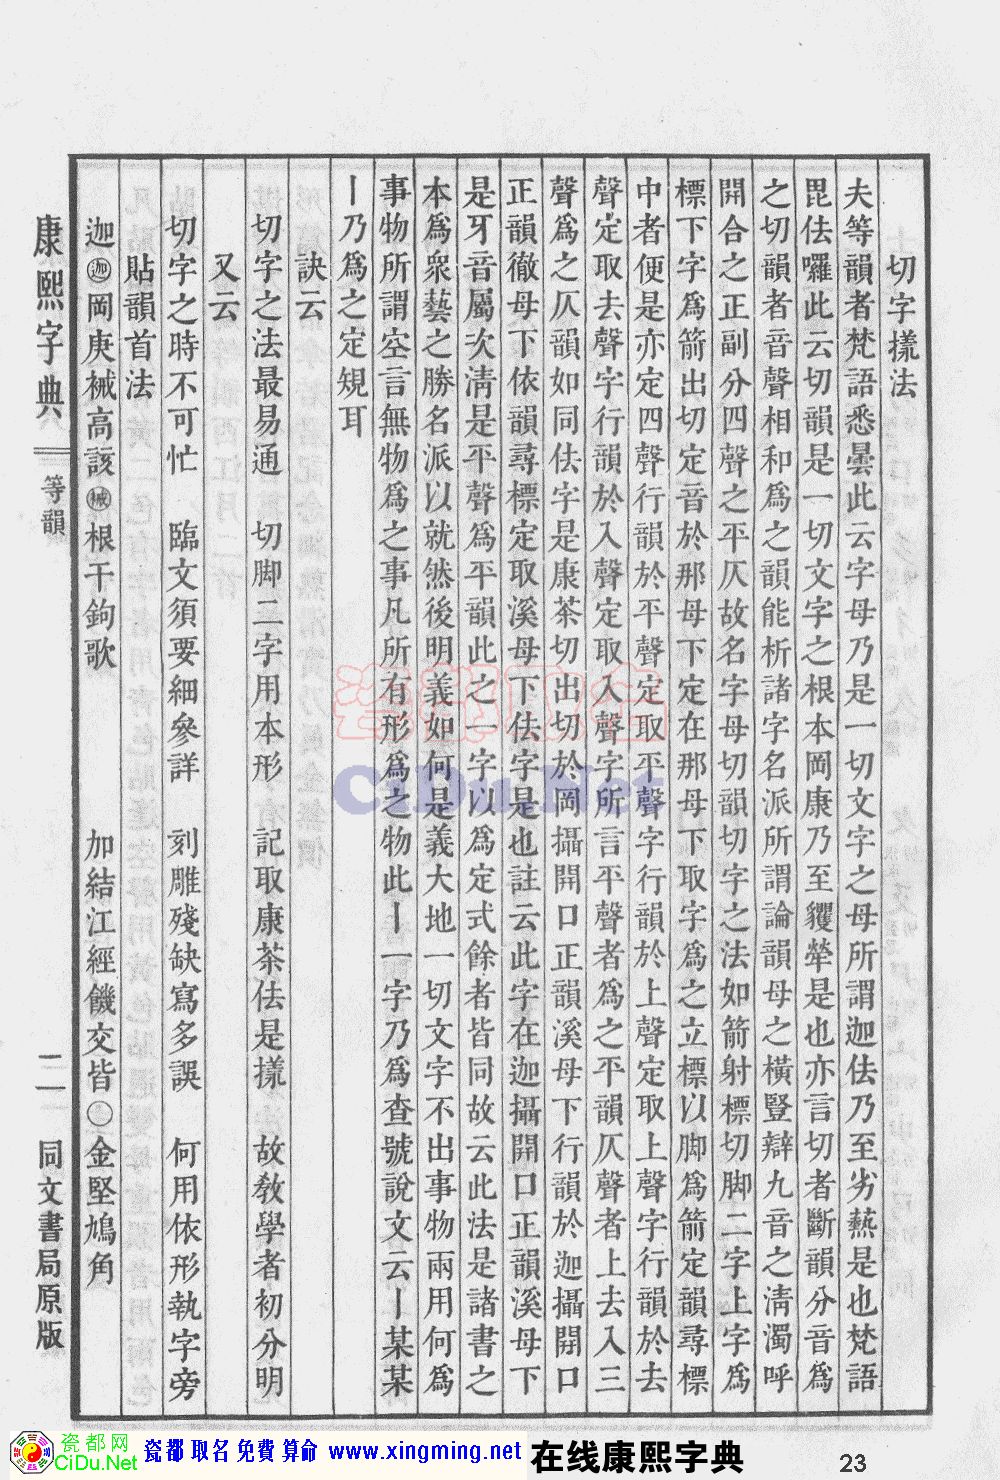 切字㨾法
夫等韻者梵語悉曇此云字母乃是一切文字之母所謂迦佉乃至劣𤍠是也梵語
毘佉囉此云切韻是一切文字之根本岡康乃至玃犖是也亦言切者斷韻分音爲
之切韻者音聲相和爲之韻能析諸字名派所謂論韻母之橫豎辯九音之淸濁呼
開合之正副分四聲之平仄故名字母切韻切字之法如箭射標切脚二字上字爲
標下字爲箭出切定音於那母下定在那母下取字爲之立標以脚爲箭定韻尋標
中者便是亦定四聲行韻於平聲定取平聲字行韻於上聲定取上聲字行韻於去
聲定取去聲字行韻於入聲定取入聲字所言平聲者爲之平韻仄聲者上去入三
聲爲之仄韻如同佉字是康茶切出切於岡攝開口正韻溪母下行韻於迦攝開口
正韻徹母下依韻尋標定取溪母下佉字是也註云此字在迦攝開口正韻溪母下
是牙音屬次淸是平聲爲平韻此之一字以爲定式餘者皆同故云此法是諸書之
本爲衆藝之勝名派以就然後明義如何是義大地一切文字不出事物兩用何爲
事物所謂空言無物爲之事凡所有形爲之物此丨一字乃爲查號說文云丨某某
丨乃爲之定規耳
訣云
切字之法最易通 切脚二字用本形 記取康茶佉是㨾 故敎學者初分明
又云
切字之時不可忙 臨文須要細參詳 刻雕殘缺寫多誤 何用依形執字旁
貼韻首法
迦㊣岡庚裓高該㊣根干鉤歌 加結江經饑交皆〇金堅鳩角
康熙字典
等韻
二一
同文書局原版
瓷都取名
CiDu.Net
瓷都网
CiDu.Net
瓷都 取名 免費 算命 www.xingming.net
在线康熙字典
23